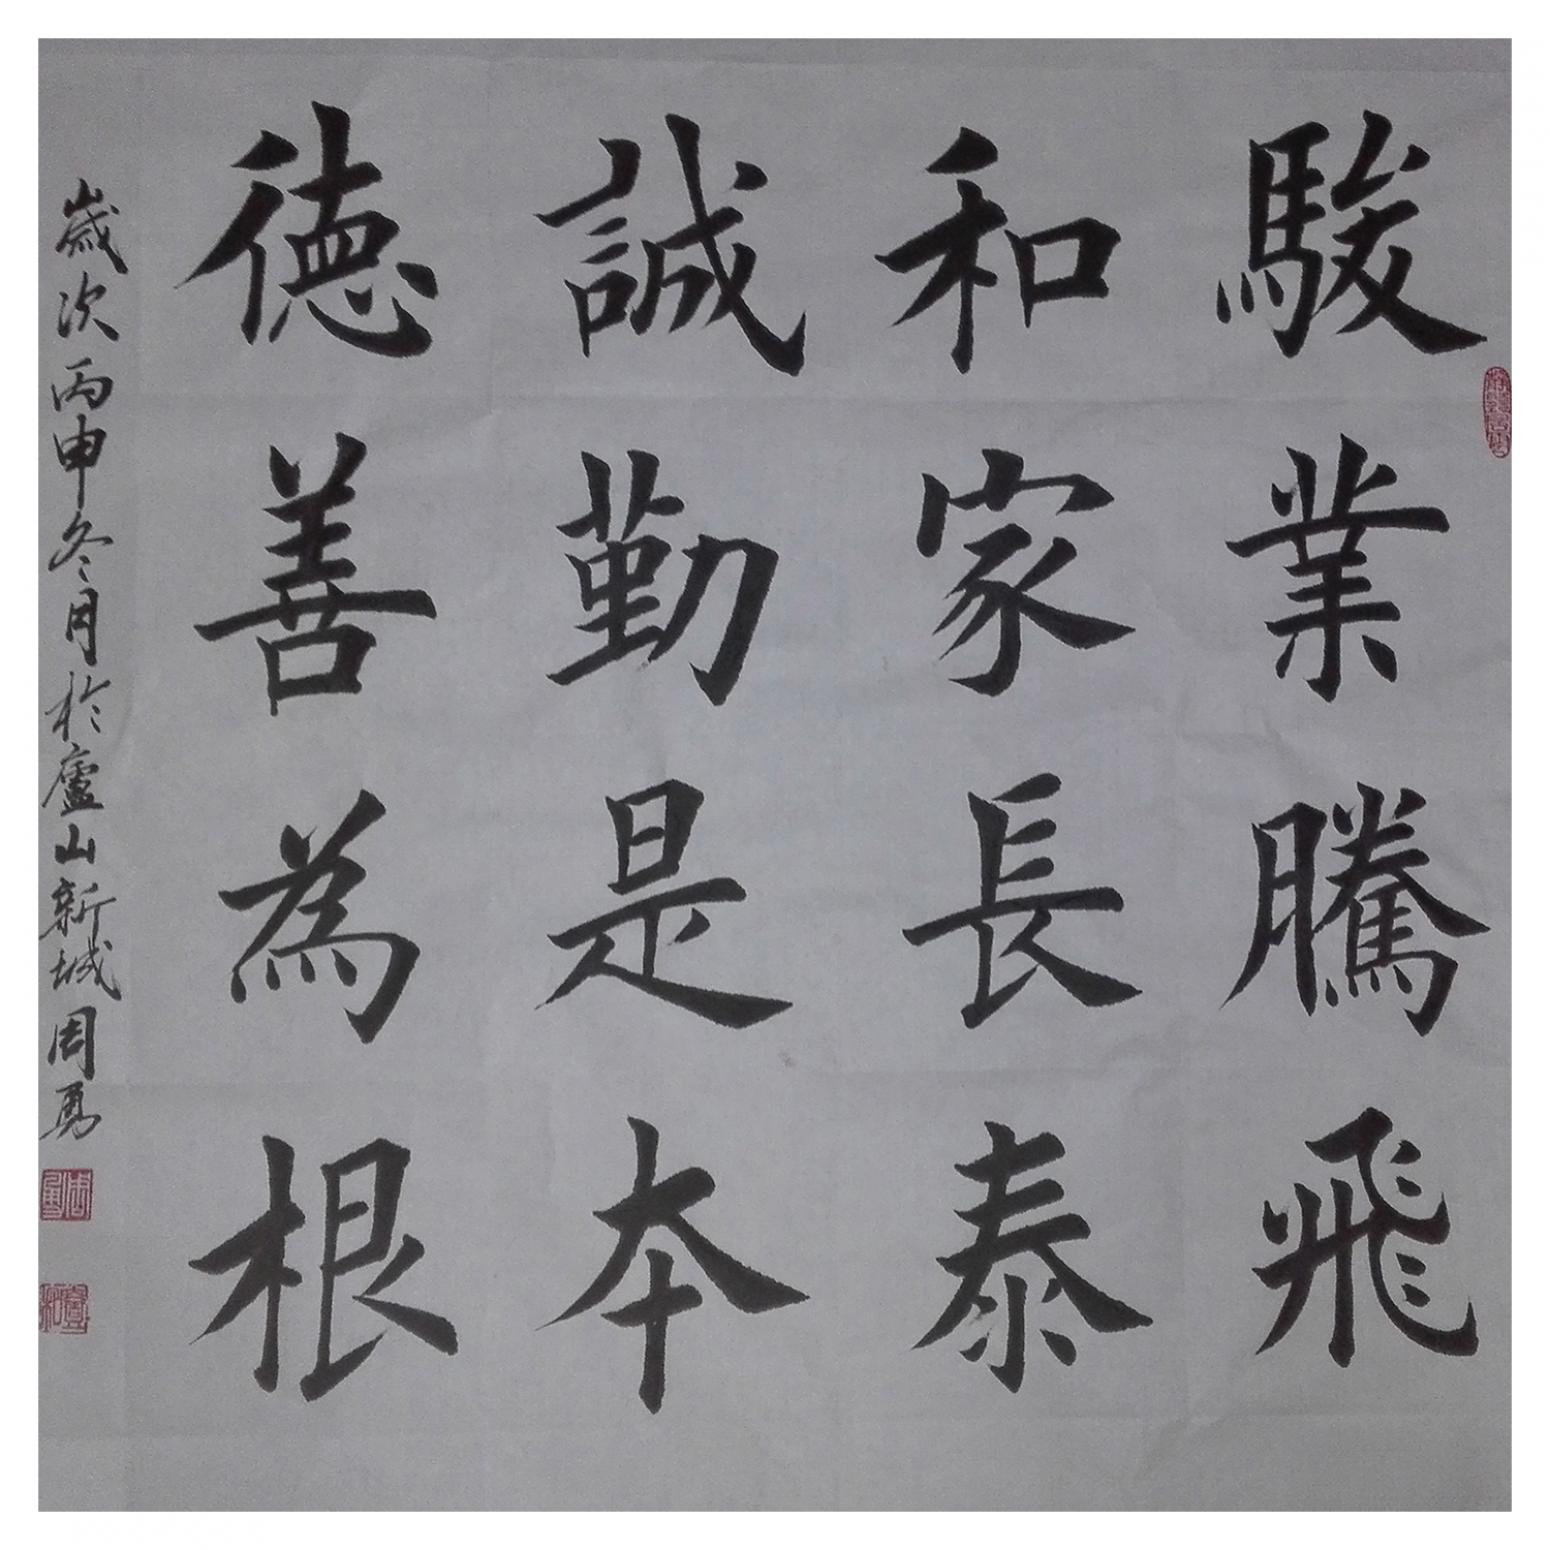 駿業騰飛
和家長泰
誠勤是本
德善為根
歲次丙申冬月於廬山新城周勇